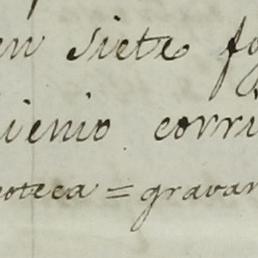 en siete
ienio corri
oteca = gravar